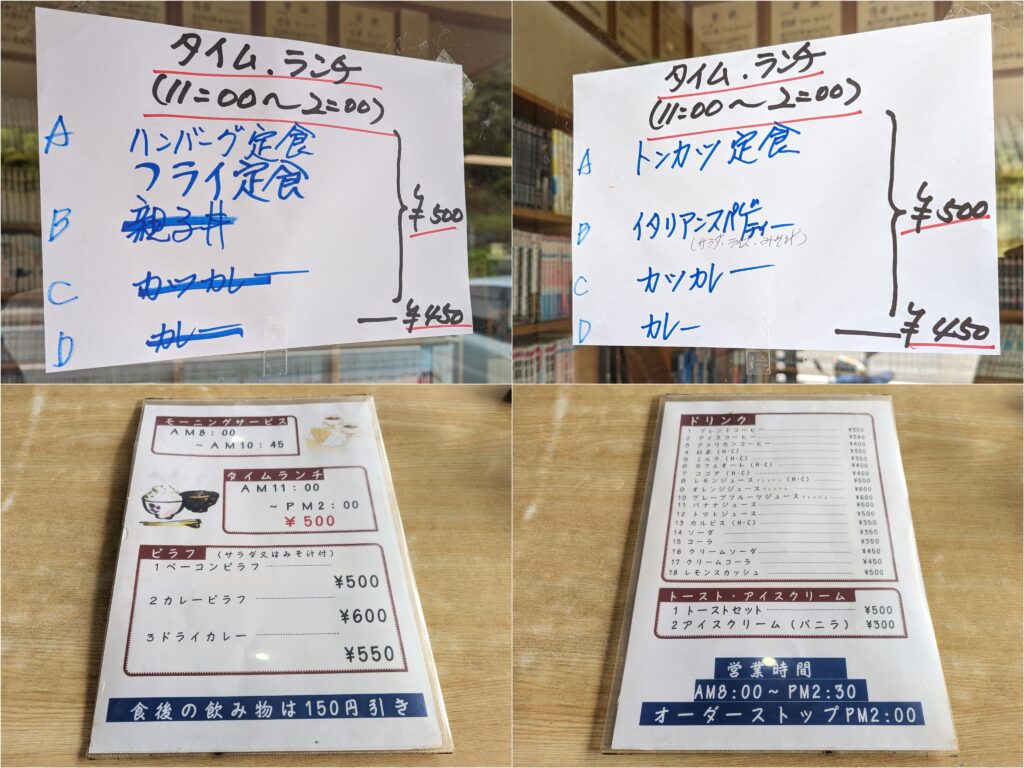 タイム.ランチ
(11=00〜2=00)
A
ハンバーグ定食
フライ定食
B
親子丼
C
カツカレー
D
カレー
¥500
¥450
タイム.ランチ
(11=00〜2=00)
A
トンカツ定食
B
イタリアンスパゲティー
(サラダ・ライス・みそ汁)
C
カツカレー
D
カレー
¥500
¥450
モーニングサービス
AM8:00
～AM10:45
タイムランチ
AM11:00
～PM2:00
¥500
ピラフ (サラダ又はみそ汁付)
1ベーコンピラフ
¥500
2カレーピラフ
¥600
3ドライカレー
¥550
食後の飲み物は150円引き
ドリンク
1 ブレンドコーヒー ¥350
2 アイスコーヒー ¥380
3 アメリカンコーヒー ¥400
4 紅茶(H・C) ¥350
5 ミルク(H・C) ¥350
6 カフェオーレ(H・C) ¥400
7 ココア(H・C) ¥400
8 レモンジュースフレッシュ(H・C) ¥500
9 オレンジジュースフレッシュ ¥600
10 グレープフルーツジュースフレッシュ ¥600
11 バナナジュース ¥500
12 トマトジュース ¥500
13 カルピス(H・C) ¥350
14 ソーダ ¥350
15 コーラ ¥350
16 クリームソーダ ¥450
17 クリームコーラ ¥450
18 レモンスカッシュ ¥500
トースト・アイスクリーム
1トーストセット ¥500
2アイスクリーム(バニラ) ¥300
営業時間
AM8:00～PM2:30
オーダーストップPM2:00